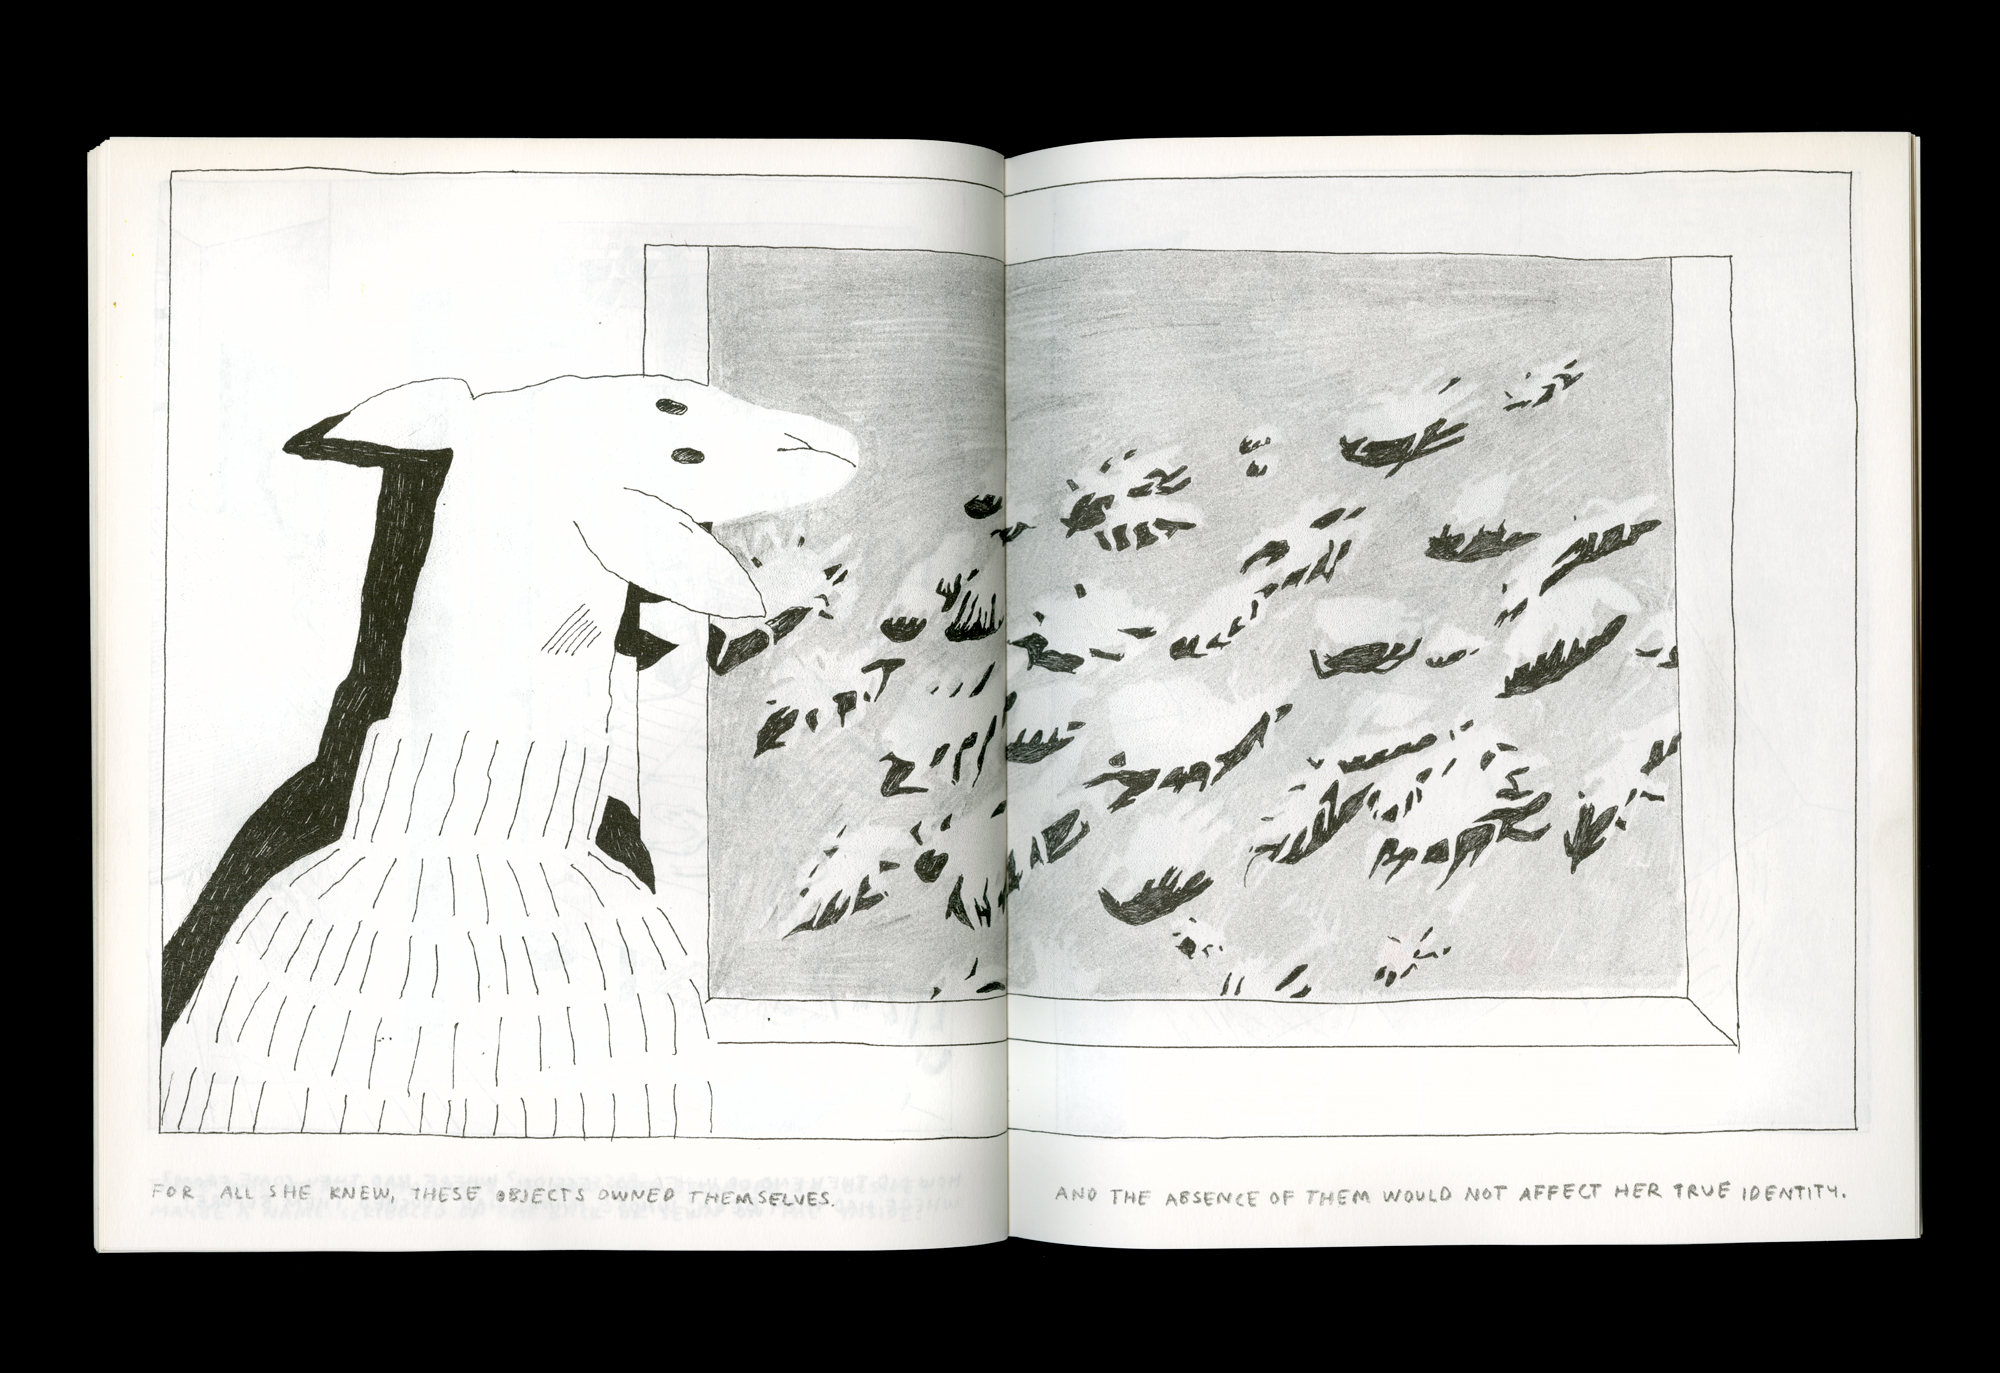 FOR ALL SHE KNEW, THESE OBJECTS OWNED THEMSELVES.
AND THE ABSENCE OF THEM WOULD NOT AFFECT HER TRUE IDENTITY.